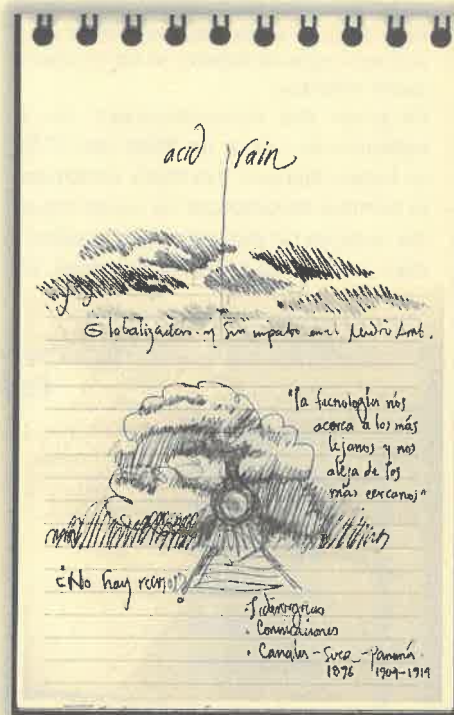 acid rain
Globalización y sin impacto en el
"la tecnología nos
acerca a los más
lejanos y nos
aleja de los
más cercanos"
¿No hay
Comunicaciones
• Canales - Suez - Panamá
1896 1904-1914